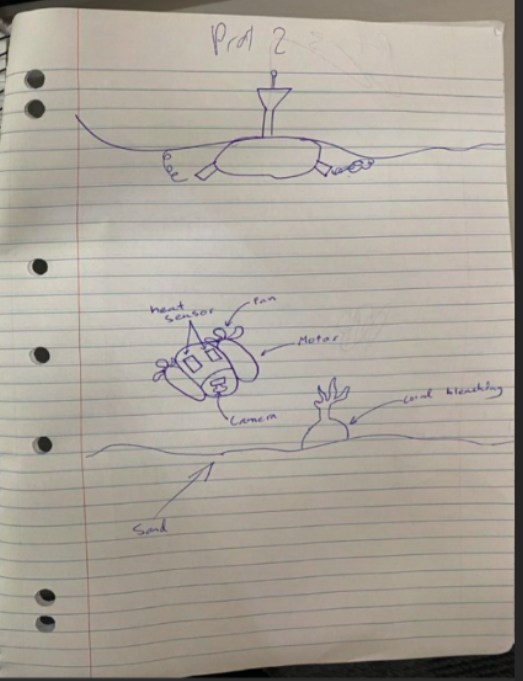 Prot 2
heat
sensor
Fan
Motor
Camera
coral bleaching
Sand